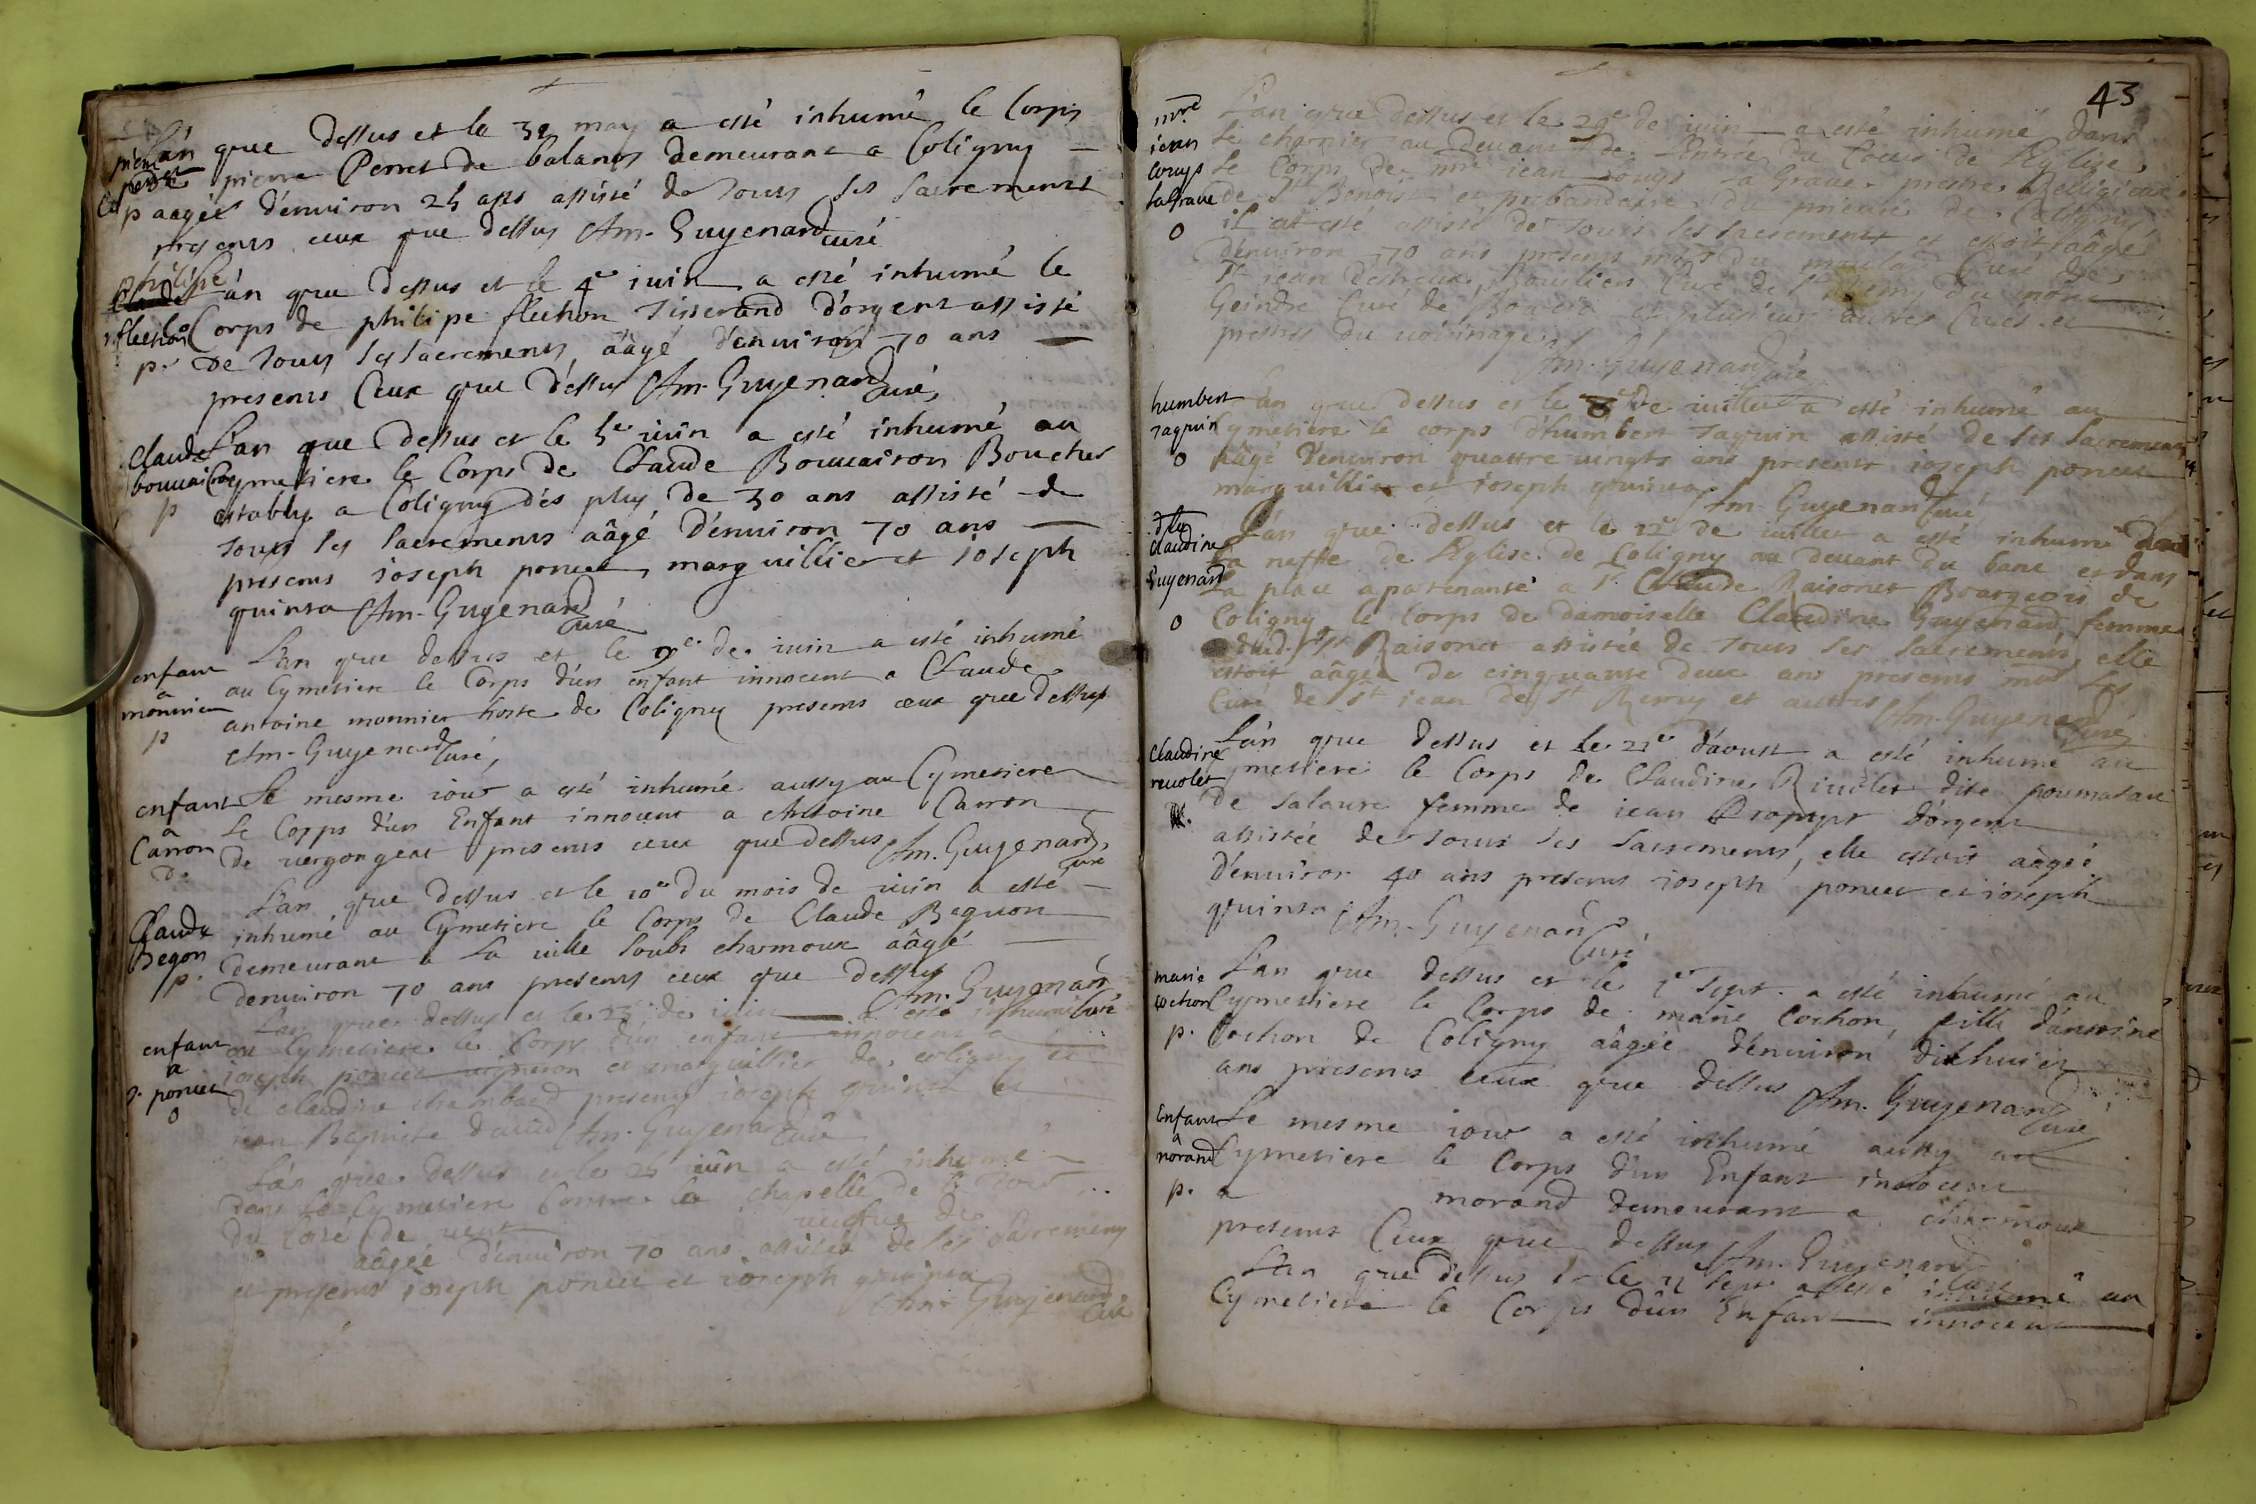 L'an que dessus et le 31 may a esté inhumé le Corps
pierre
perret
de pierre Perret de balanos demeurant a Coligny
p aagé d'enuiron 25 ans assisté de tous les sacrements
presents ceux que dessus Am. Guyenard curé
philipe
flechon
L'an que dessus et le 4e iuin a esté inhumé le
Corps de philipe flechon Tisserand d'orgent assisté
p. de tous les sacrements, aâgé d'enuiron 70 ans
presents Ceux que dessus Am. Guyenard curé
Claude
bouuairon
p
L'an que dessus et le 5e iuin a esté inhumé au
Cymetiere le Corps de Claude Bouuairon Boucher
estably a Coligny dés plus de 30 ans assisté de
tous les sacrements aâgé d'enuiron 70 ans
presents ioseph poncet, marguillier et ioseph
quinsa Am. Guyenard curé
enfant
a
monnier
p
L'an que dessus et le 9e de iuin a esté inhumé
au Cymetiere le Corps d'un enfant innocent a Claude
antoine monnier hoste de Coligny presents ceux que dessus
Am. Guyenard Curé,
enfant
a
Carron
Le mesme iour a esté inhumé aussy au Cymetiere
le Corps d'un Enfant innocent a Antoine Carron
de uergongeat presents ceux que dessus Am. Guyenard
curé
Claude
Begon
p.
L'an que dessus et le 10e du mois de iuin a esté
inhumé au Cymetiere le Corps de Claude Beguon
demeurant a La uille soubs charmoux aâgé
denuiron 70 ans presents ceux que dessus
Am. Guyenard
Curé
enfant
a
J. poncet
o
L'an que dessus et le 23 de iuin a esté inhumé
au Cymetiere le Corps d'un enfant innocent a
ioseph poncet uigneron et marguillier de coligny et
de claudine chambard presents ioseph quinsa et
iean Baptiste Dauid Am. Guyenard Curé
L'an que dessus et le 25 iuin a esté inhumé
dans le Cymetiere Contre la chapelle de
du Costé de uent ueufue de
aâgée d'enuiron 70 ans assistée de ses sacrements
et presents ioseph poncet et ioseph quinsa
Am. Guyenard
Curé
43
mre
iean
Lougs
laGraue
o
L'an que dessus et le 29e de iuin a esté inhumé dans
le charnier au deuant de l'entrée du Coeur de l'Eglise,
le Corps de mre iean Lougs la Graue prestre Relligieux
de St Benoist et prebandaire du prieuré de Coligny
il at esté assisté de tous les sacrements et estoit aâgé
denuiron 70 ans presents mrs du moulin Curé de
St iean Curé de St Remy du mont
Geindre Curé de et plusieurs autres Curés et
prestres du uoisinage
Am. Guyenard curé
humbert
Taquin
o
L'an que dessus et le 8e de iuillet a esté inhumé au
Cymetiere le corps d'humbert Taquin assisté de ses sacrements
aâgé d'enuiron quattre uingts ans presents ioseph poncet
marguillier et ioseph quinsa Am. Guyenard Curé
dlle
Claudine
Guyenard
o
L'an que dessus et le 12e de iuillet a esté inhumé dans
La neffe de l'Eglise de Coligny au deuant du banc et dans
La place apartenante a Sr Claude Raisonet Bourgeois de
Coligny, le Corps de damoiselle Claudine Guyenard femme
dud. Sr Raisonet assistée de tous ses sacrements, elle
estoit aâgée de cinquante deux ans presents mrs les
Curé de St iean de St Remy et autres Am. Guyenard
Curé
Claudine
reuolet
L'an que dessus et le 21e d'aoust a esté inhumé au
Cymetiere le Corps de Claudine Riuolet dite
de Salaure femme de iean Prompt d'orgent
assistée de tous ses sacrements, elle estoit aâgée
d'enuiron 40 ans presents ioseph poncet et ioseph
quinsa Am. Guyenard
Curé
marie
cochon
p.
L'an que dessus et le 1e Sept. a esté inhumé au
Cymetiere le Corps de marie Cochon, fille d'antoine
Cochon de Coligny aâgée d'enuiron dixhuict
ans presents ceux que dessus Am. Guyenard
curé
Enfant
a
morand
p.
Le mesme iour a esté inhumé aussy au
Cymetiere le Corps d'un Enfant innocent
a morand demeurant a charmoux
presents Ceux que dessus Am. Guyenard
Curé
L'an que dessus et le 11 sept a esté inhumé au
Cymetiere le Corps d'un Enfant innocent